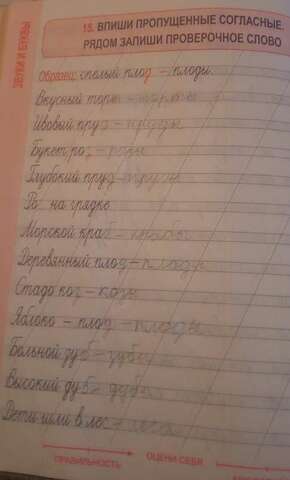 15. ВПИШИ ПРОПУЩЕННЫЕ СОГЛАСНЫЕ.
РЯДОМ ЗАПИШИ ПРОВЕРОЧНОЕ СЛОВО
ЗВУКИ И БУКВЫ
Образец: спелый плод – плоды.
Вкусный торт – торты
Ивовый пруд – пруды
Букет роз – розы
Глубокий пруд – пруды
Ро на грядке
Морской краб – крабы
Деревянный плод – плоды
Стадо коз – козы
Яблоко – плод – плоды
Больной зуб – зубы
Высокий дуб – дубы
Дети шли в лес – леса
ПРАВИЛЬНОСТЬ
ОЦЕНИ СЕБЯ